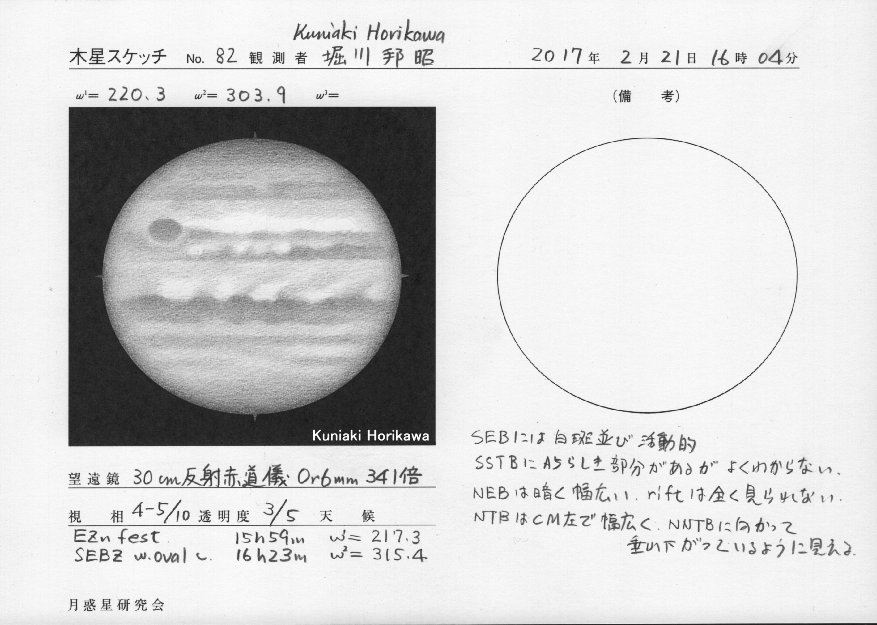 Kuniaki Horikawa
木星スケッチ No. 82 観測者 堀川邦昭 2017年 2月21日 16時04分
ω¹= 220.3 ω²= 303.9 ω³=
(備 考)
Kuniaki Horikawa
SEBには白斑並び活動的
SSTBにA5らしき部分があるがよくわからない.
NEBは暗く幅広い. riftは全く見られない.
NTBはCM左で幅広く. NNTBに向かって
垂れ下がっているように見える.
望遠鏡 30cm反射赤道儀 Or6mm 341倍
視 相 4-5/10 透明度 3/5 天 候
EZn fest. 15h59m ω¹= 217.3
SEBZ w.oval c. 16h23m ω²= 315.4
月惑星研究会